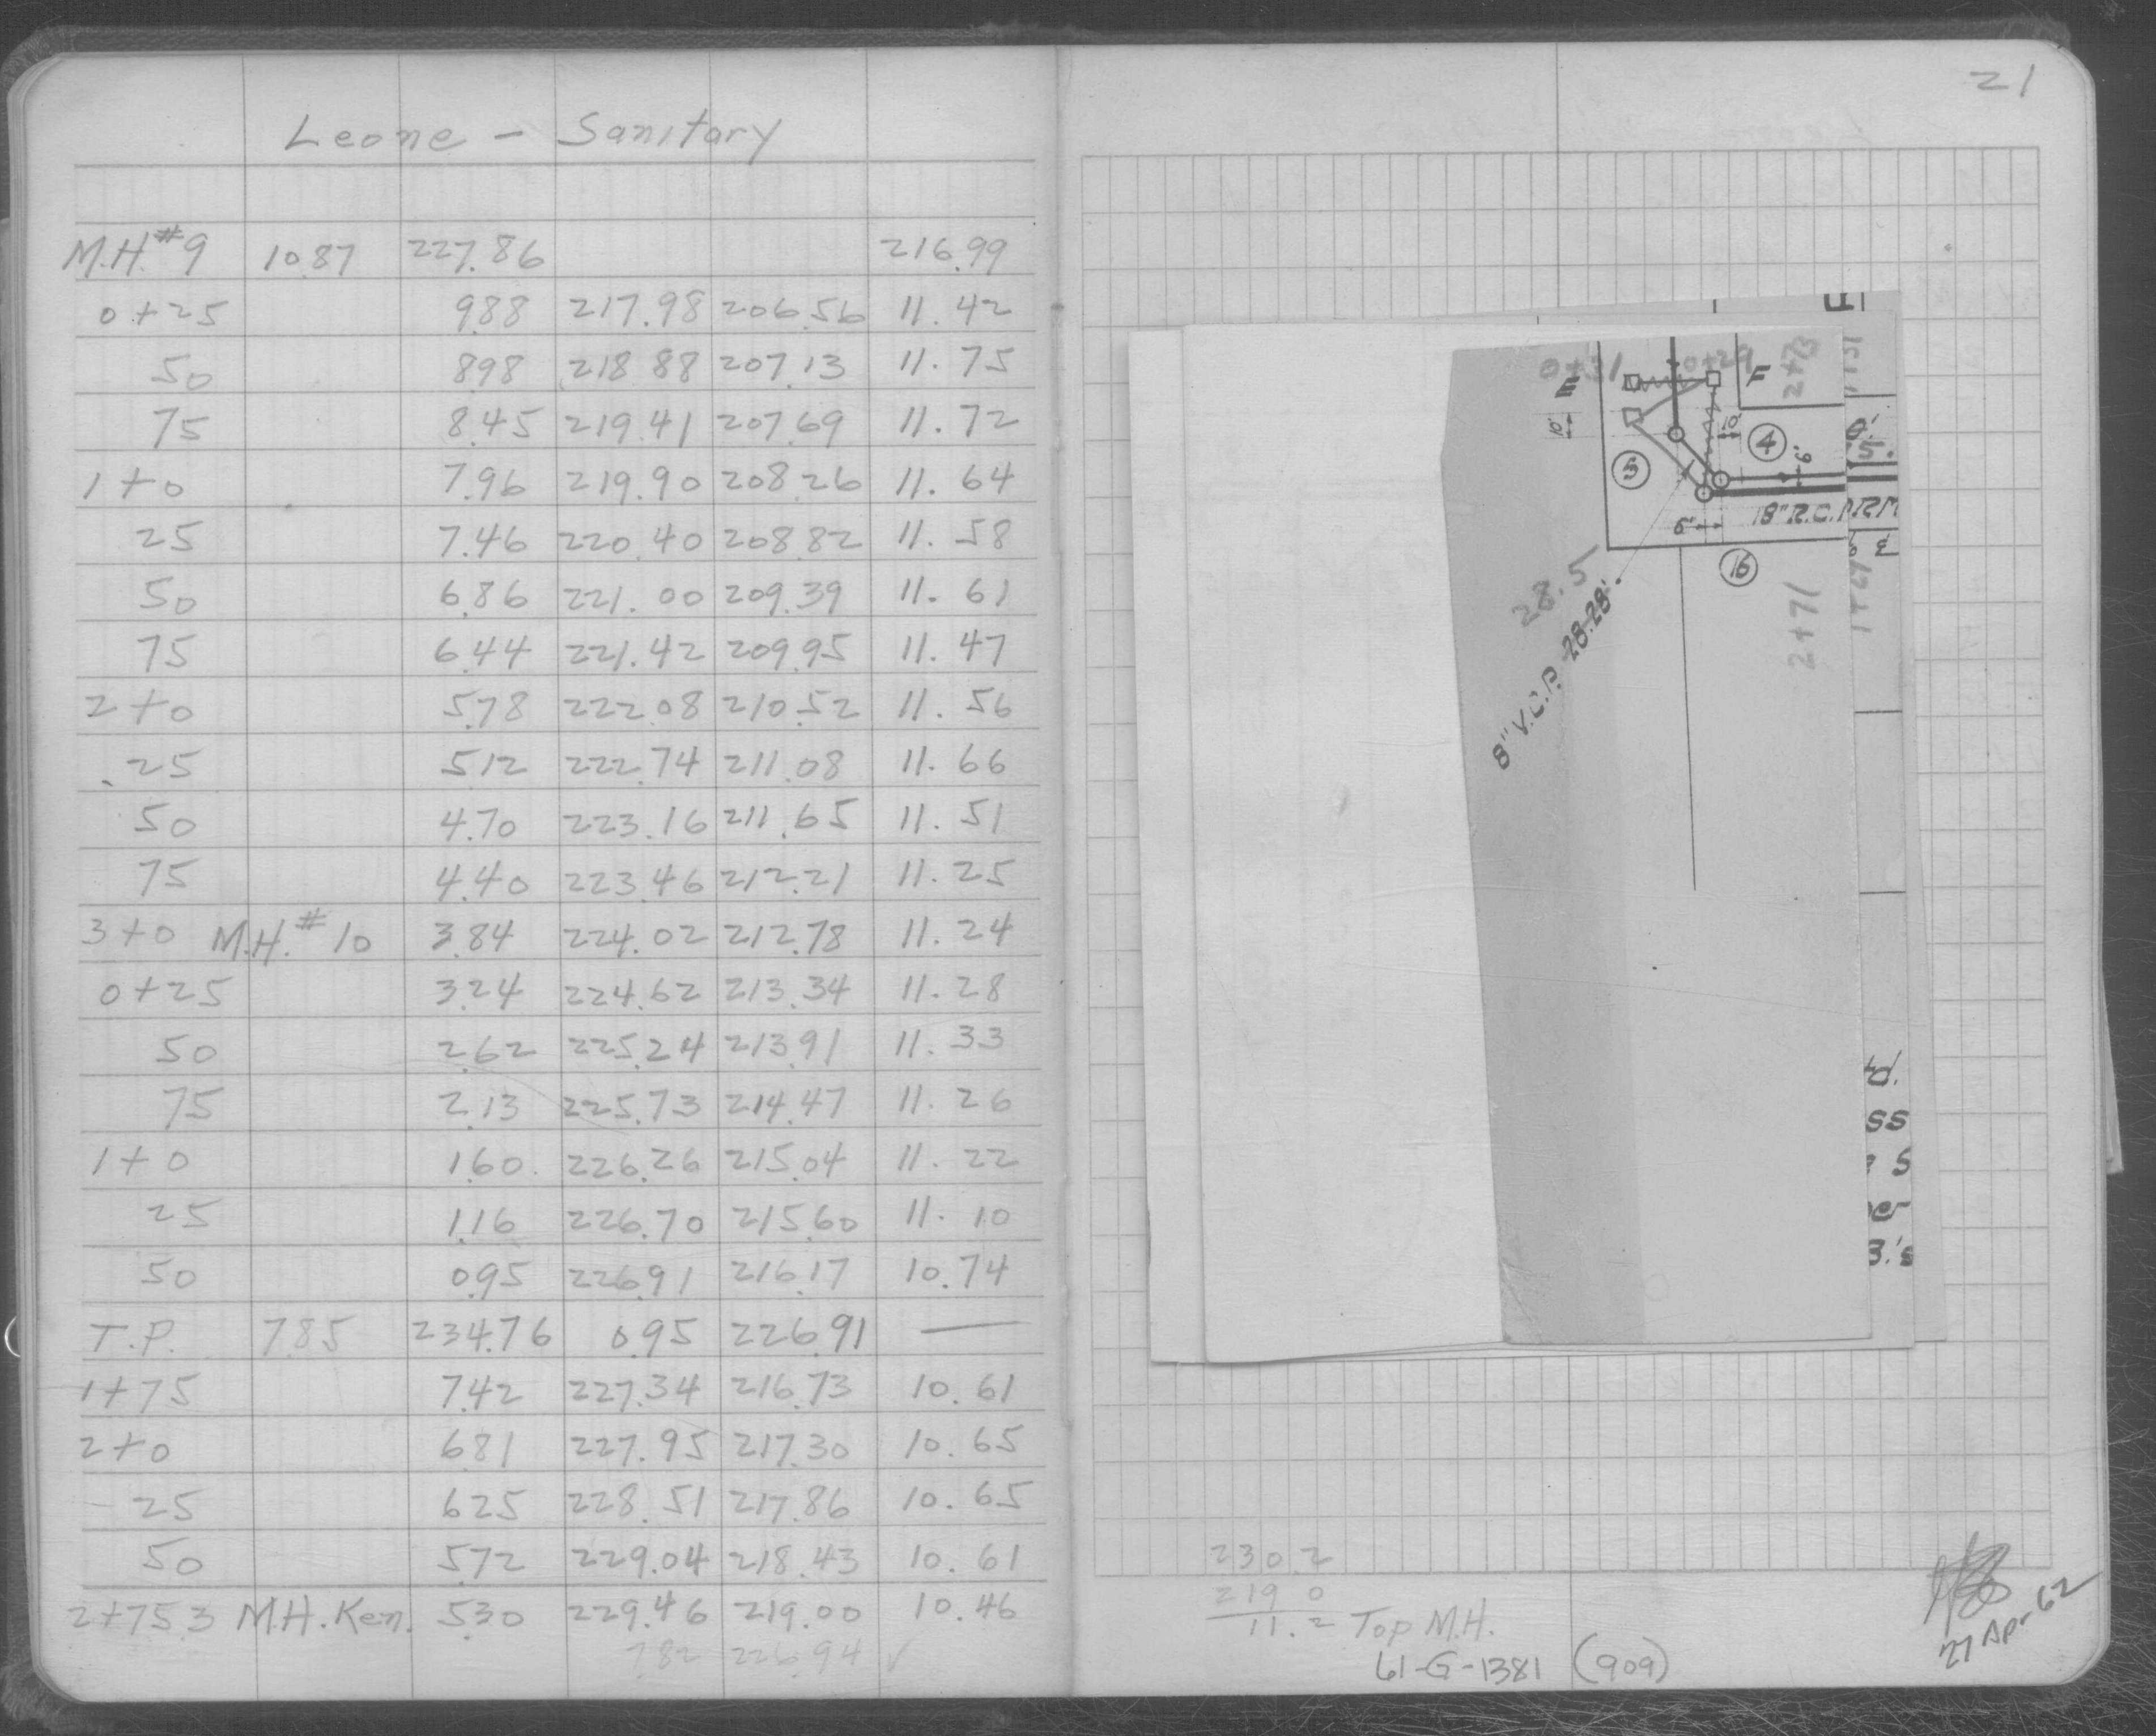 Leone - Sanitary
M.H.#9 10.87 227.86 216.99
0+25 9.88 217.98 206.56 11.42
50 8.98 218.88 207.13 11.75
75 8.45 219.41 207.69 11.72
1+0 7.96 219.90 208.26 11.64
25 7.46 220.40 208.82 11.58
50 6.86 221.00 209.39 11.61
75 6.44 221.42 209.95 11.47
2+0 5.78 222.08 210.52 11.56
25 5.12 222.74 211.08 11.66
50 4.70 223.16 211.65 11.51
75 4.40 223.46 212.21 11.25
3+0 M.H.#10 3.84 224.02 212.78 11.24
0+25 3.24 224.62 213.34 11.28
50 2.62 225.24 213.91 11.33
75 2.13 225.73 214.47 11.26
1+0 1.60 226.26 215.04 11.22
25 1.16 226.70 215.60 11.10
50 0.95 226.91 216.17 10.74
T.P. 7.85 234.76 0.95 226.91 —
1+75 7.42 227.34 216.73 10.61
2+0 6.81 227.95 217.30 10.65
25 6.25 228.51 217.86 10.65
50 5.72 229.04 218.43 10.61
2+75.3 M.H. Ken. 5.30 229.46 219.00 10.46
7.82 226.94 ✓
21
0+31 0+29 2+73
E F
10' 10'
5 4 6'
6' 18" R.C.
16
28.5
8" V.C.P. 28.28'
2+71
td.
ss
S
er
B.'s
230.2
219.0
11.2 Top M.H.
61-G-1381 (909)
27 Apr 62